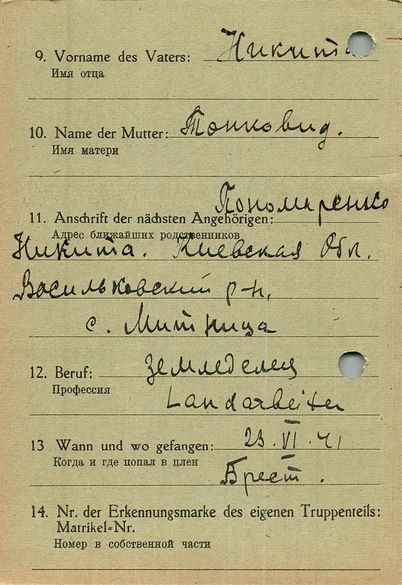 9. Vorname des Vaters: Никита
Имя отца
10. Name der Mutter: Тонковид.
Имя матери
Пономаренко
11. Anschrift der nächsten Angehörigen:
Адрес ближайших родственников
Никита. Киевская обл.
Васильковский р-н,
с. Митница
12. Beruf: Земледелец
Профессия
Landarbeiter
13 Wann und wo gefangen: 23.VI.41
Когда и где попал в плен
Брест.
14. Nr. der Erkennungsmarke des eigenen Truppenteils:
Matrikel-Nr.
Номер в собственной части